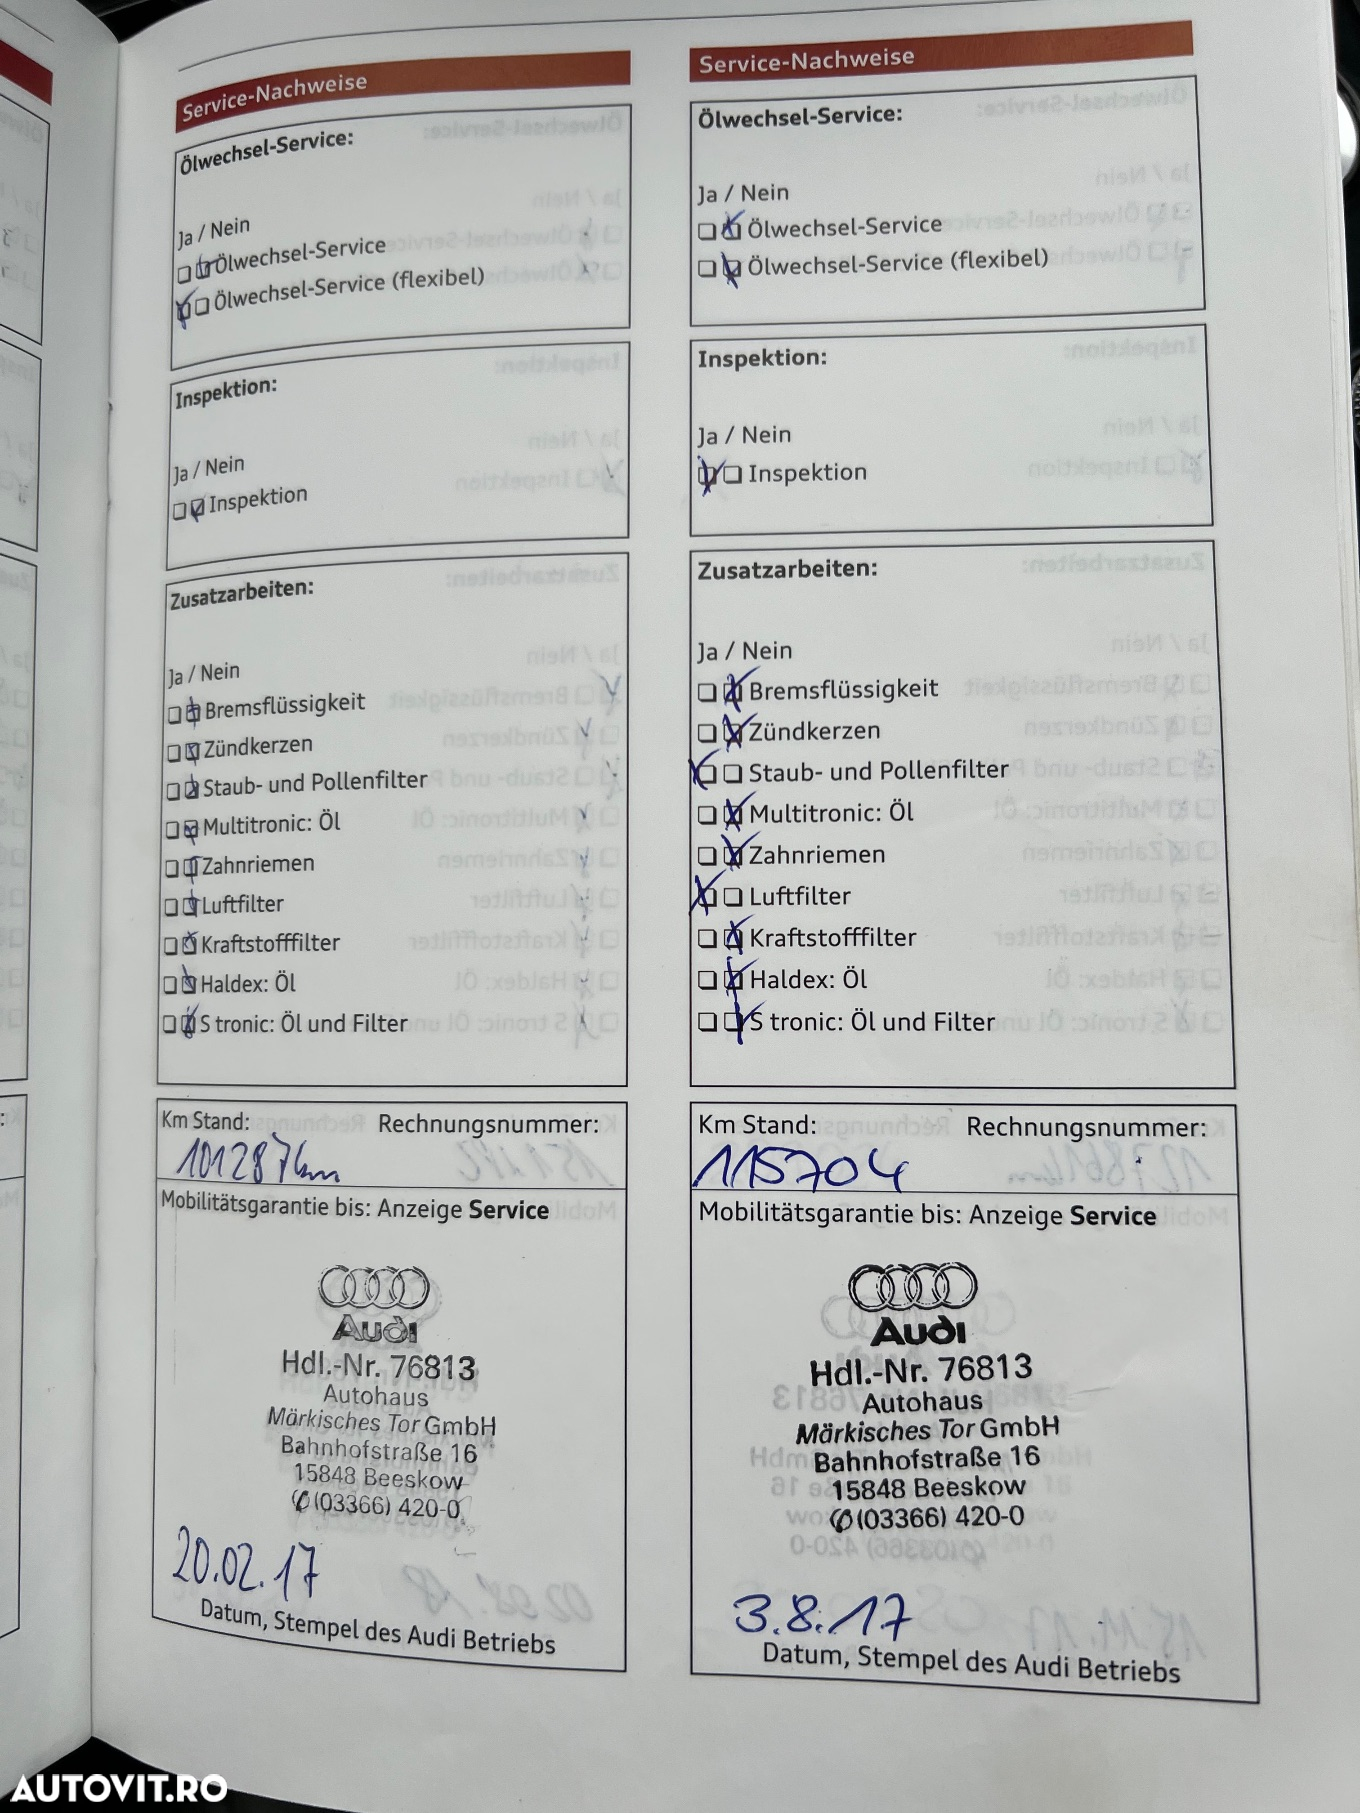 Service-Nachweise
Ölwechsel-Service:
Ja / Nein
Ölwechsel-Service
Ölwechsel-Service (flexibel)
Inspektion:
Ja / Nein
Inspektion
Zusatzarbeiten:
Ja / Nein
Bremsflüssigkeit
Zündkerzen
Staub- und Pollenfilter
Multitronic: Öl
Zahnriemen
Luftfilter
Kraftstofffilter
Haldex: Öl
S tronic: Öl und Filter
Km Stand: Rechnungsnummer:
101287km
Mobilitätsgarantie bis: Anzeige Service
Audi
Hdl.-Nr. 76813
Autohaus
Märkisches Tor GmbH
Bahnhofstraße 16
15848 Beeskow
✆ (03366) 420-0
20.02.17
Datum, Stempel des Audi Betriebs
Service-Nachweise
Ölwechsel-Service:
Ja / Nein
Ölwechsel-Service
Ölwechsel-Service (flexibel)
Inspektion:
Ja / Nein
Inspektion
Zusatzarbeiten:
Ja / Nein
Bremsflüssigkeit
Zündkerzen
Staub- und Pollenfilter
Multitronic: Öl
Zahnriemen
Luftfilter
Kraftstofffilter
Haldex: Öl
S tronic: Öl und Filter
Km Stand: Rechnungsnummer:
115704
Mobilitätsgarantie bis: Anzeige Service
Audi
Hdl.-Nr. 76813
Autohaus
Märkisches Tor GmbH
Bahnhofstraße 16
15848 Beeskow
✆ (03366) 420-0
3.8.17
Datum, Stempel des Audi Betriebs
AUTOVIT.RO